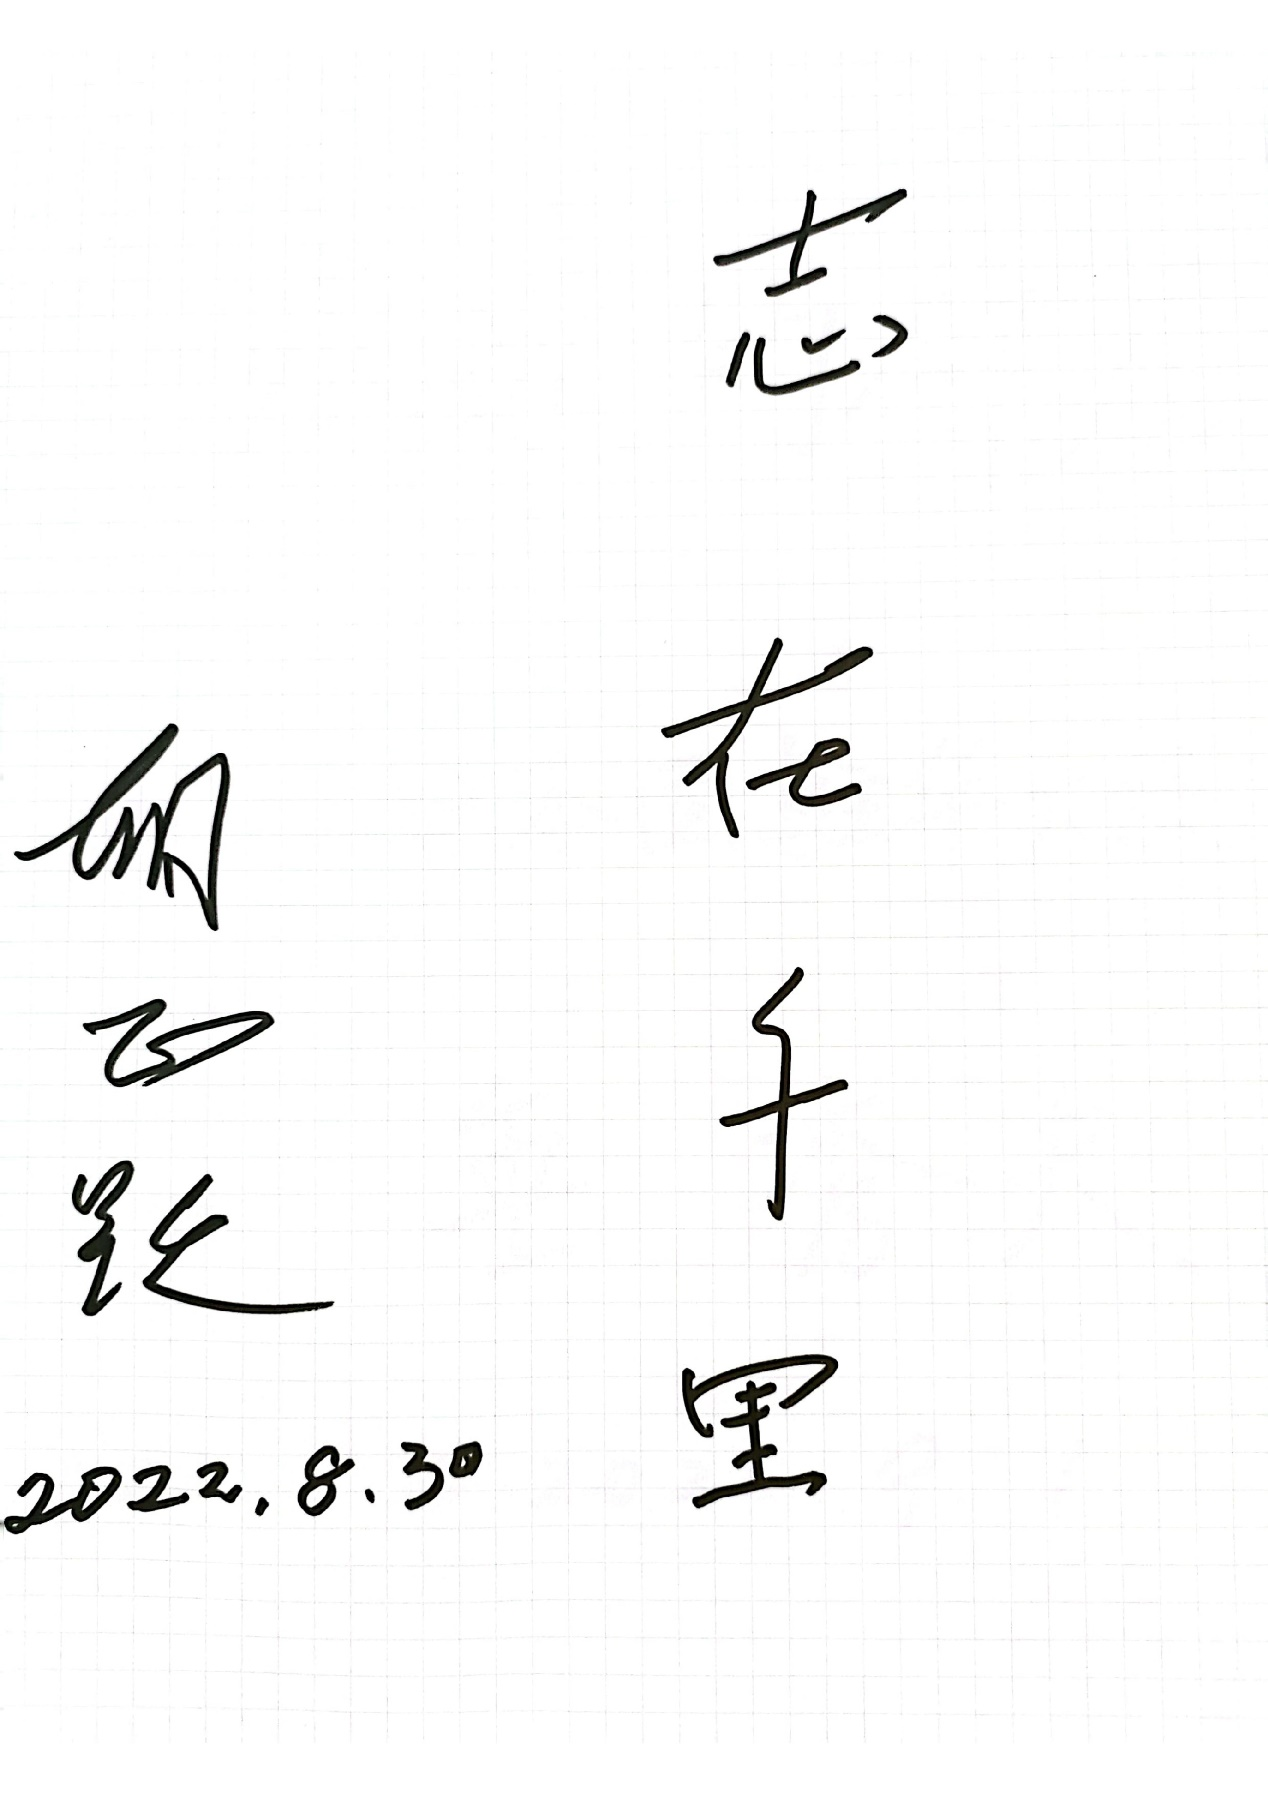 志在千里
题
2022.8.30